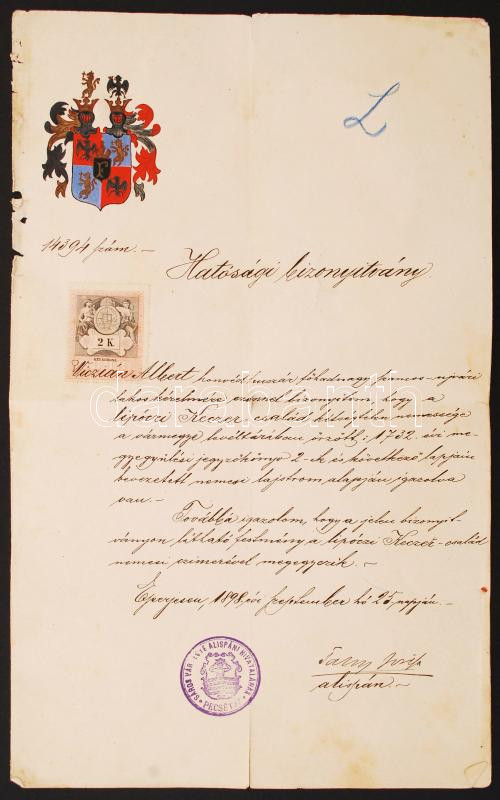 L
14394 szám.-
Hatósági bizonyitvány.
2 K
Viczián Albert honvéd huszár főhadnagy
lakos kérelmére ezennel bizonyitom, hogy a
lipóczi Keczer család kétségtelen nemessége
a vármegye levéltárában őrzött, 1732. évi me-
gyegyülési jegyzőkönyv 2-ik és következő lapjain
bevezetett nemesi lajstrom alapján igazolva
van.-
Továbbá igazolom, hogy a jelen bizonyit-
ványon látható festmény a lipóczi Keczer-család
nemesi czimerével megegyezik.-
Eperjesen, 1898. évi szeptember hó 25. napján.-
alispán.-
SÁROS VÁR ALISPÁNI HIVATALÁNAK
PECSÉTJE
darabanth